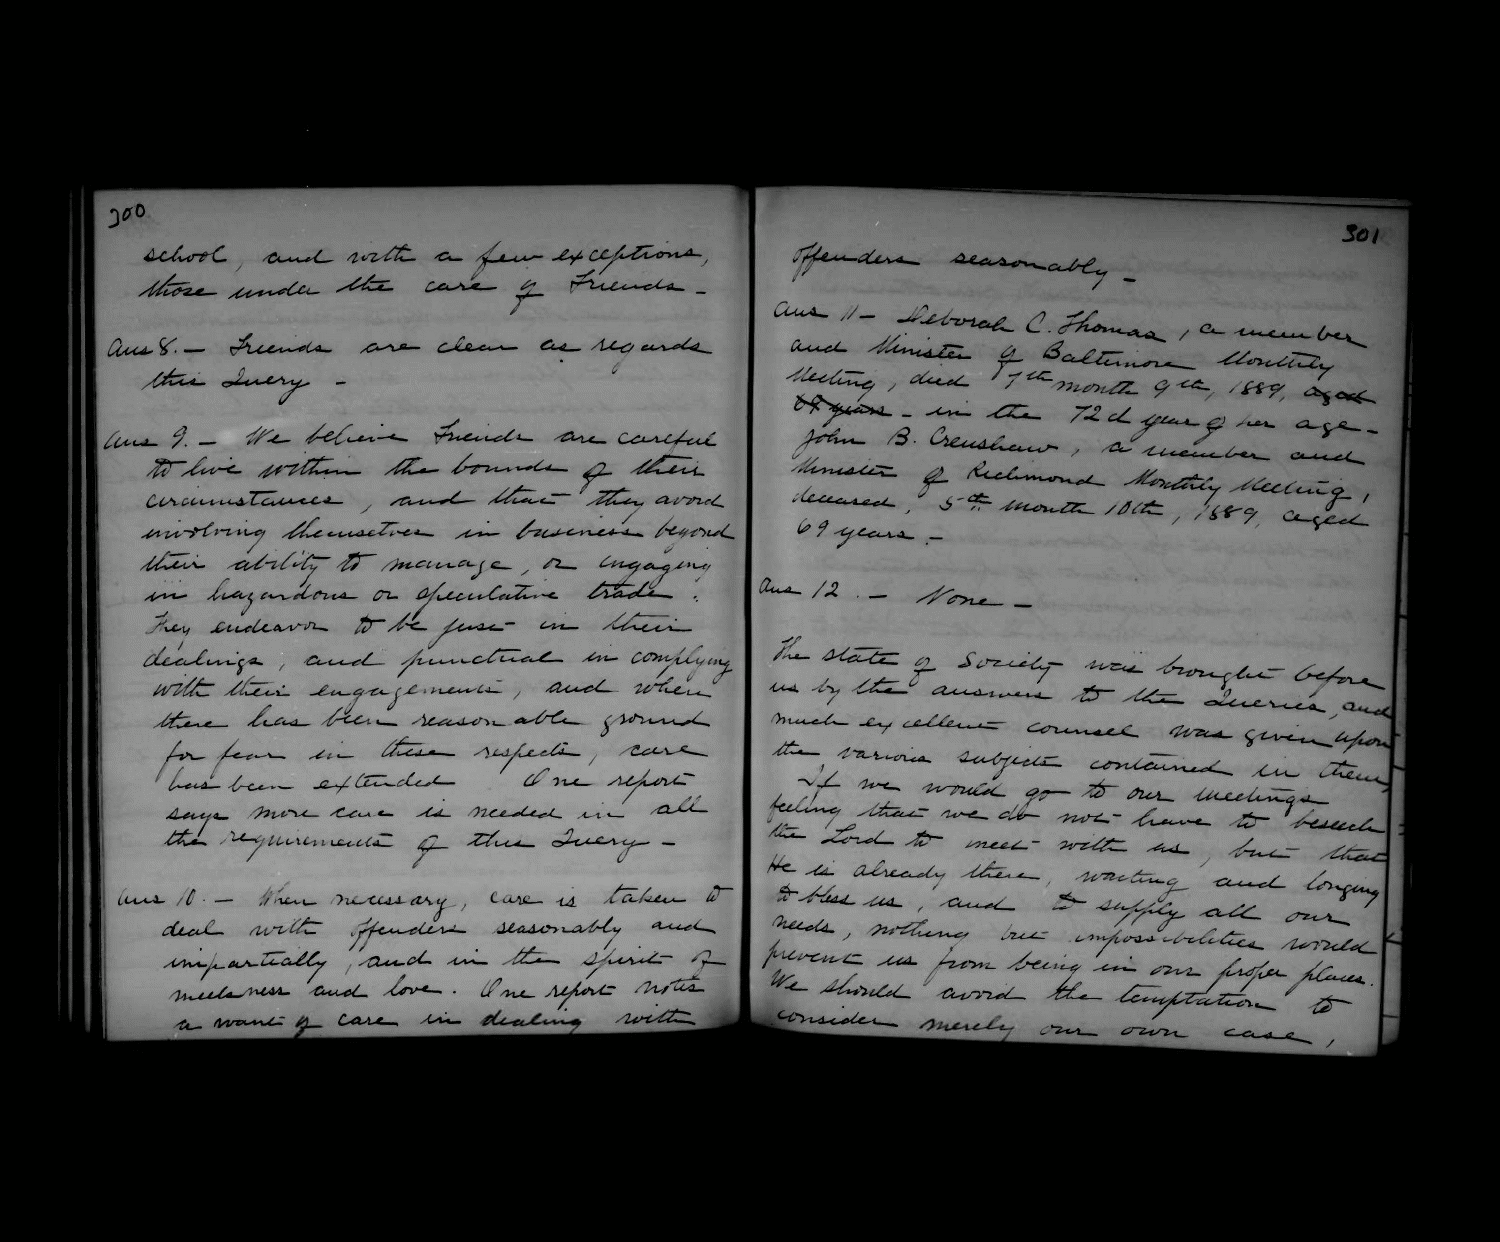 300
school, and with a few exceptions,
those under the care of Friends –
Ans 8. – Friends are clear as regards
this Query –
Ans 9. – We believe Friends are careful
to live within the bounds of their
circumstances, and that they avoid
involving themselves in business beyond
their ability to manage, or engaging
in hazardous or speculative trade.
They endeavor to be just in their
dealings, and punctual in complying
with their engagements, and when
there has been reasonable ground
for fear in these respects, care
has been extended One report
says more care is needed in all
the requirements of this Query –
Ans 10. – When necessary, care is taken to
deal with offenders seasonably and
impartially, and in the spirit of
meekness and love. One report notes
a want of care in dealing with
301
offenders seasonably –
Ans 11 – Deborah C. Thomas, a member
and Minister of Baltimore Monthly
Meeting, died 7th month 9th, 1889, aged
69 years – in the 72d year of her age –
John B. Crenshaw, a member and
Minister of Richmond Monthly Meeting,
deceased, 5th month 10th, 1889, aged
69 years –
Ans 12. – None –
The state of Society was brought before
us by the answers to the Queries, and
much excellent counsel was given upon
the various subjects contained in them,
If we would go to our meetings
feeling that we do not have to beseech
the Lord to meet with us, but that
He is already there, waiting and longing
to bless us, and to supply all our
needs, nothing but impossibilities would
prevent us from being in our proper places.
We should avoid the temptation to
consider merely our own case,